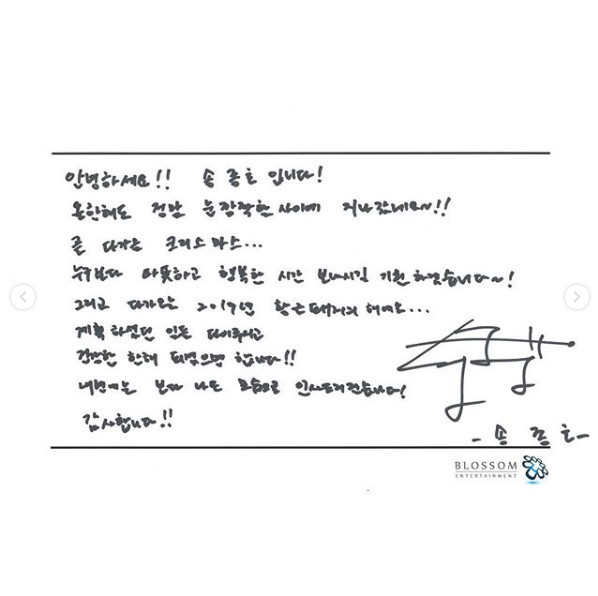 안녕하세요!! 송종호 입니다!
올한해도 정말 눈깜짝할사이에 지나갔네요~!!
곧 다가올 크리스마스...
누구보다 따뜻하고 행복한 시간 보내시길 기원하겠습니다~!
그리고 다가오는 2019년 황금돼지의 해에도...
계획하셨던 일들 다이루시고
건강한 한해 되셨으면 합니다!!
내년에는 보다 나은 모습으로 인사드리겠습니다!
감사합니다!!
-송종호-
BLOSSOM
ENTERTAINMENT